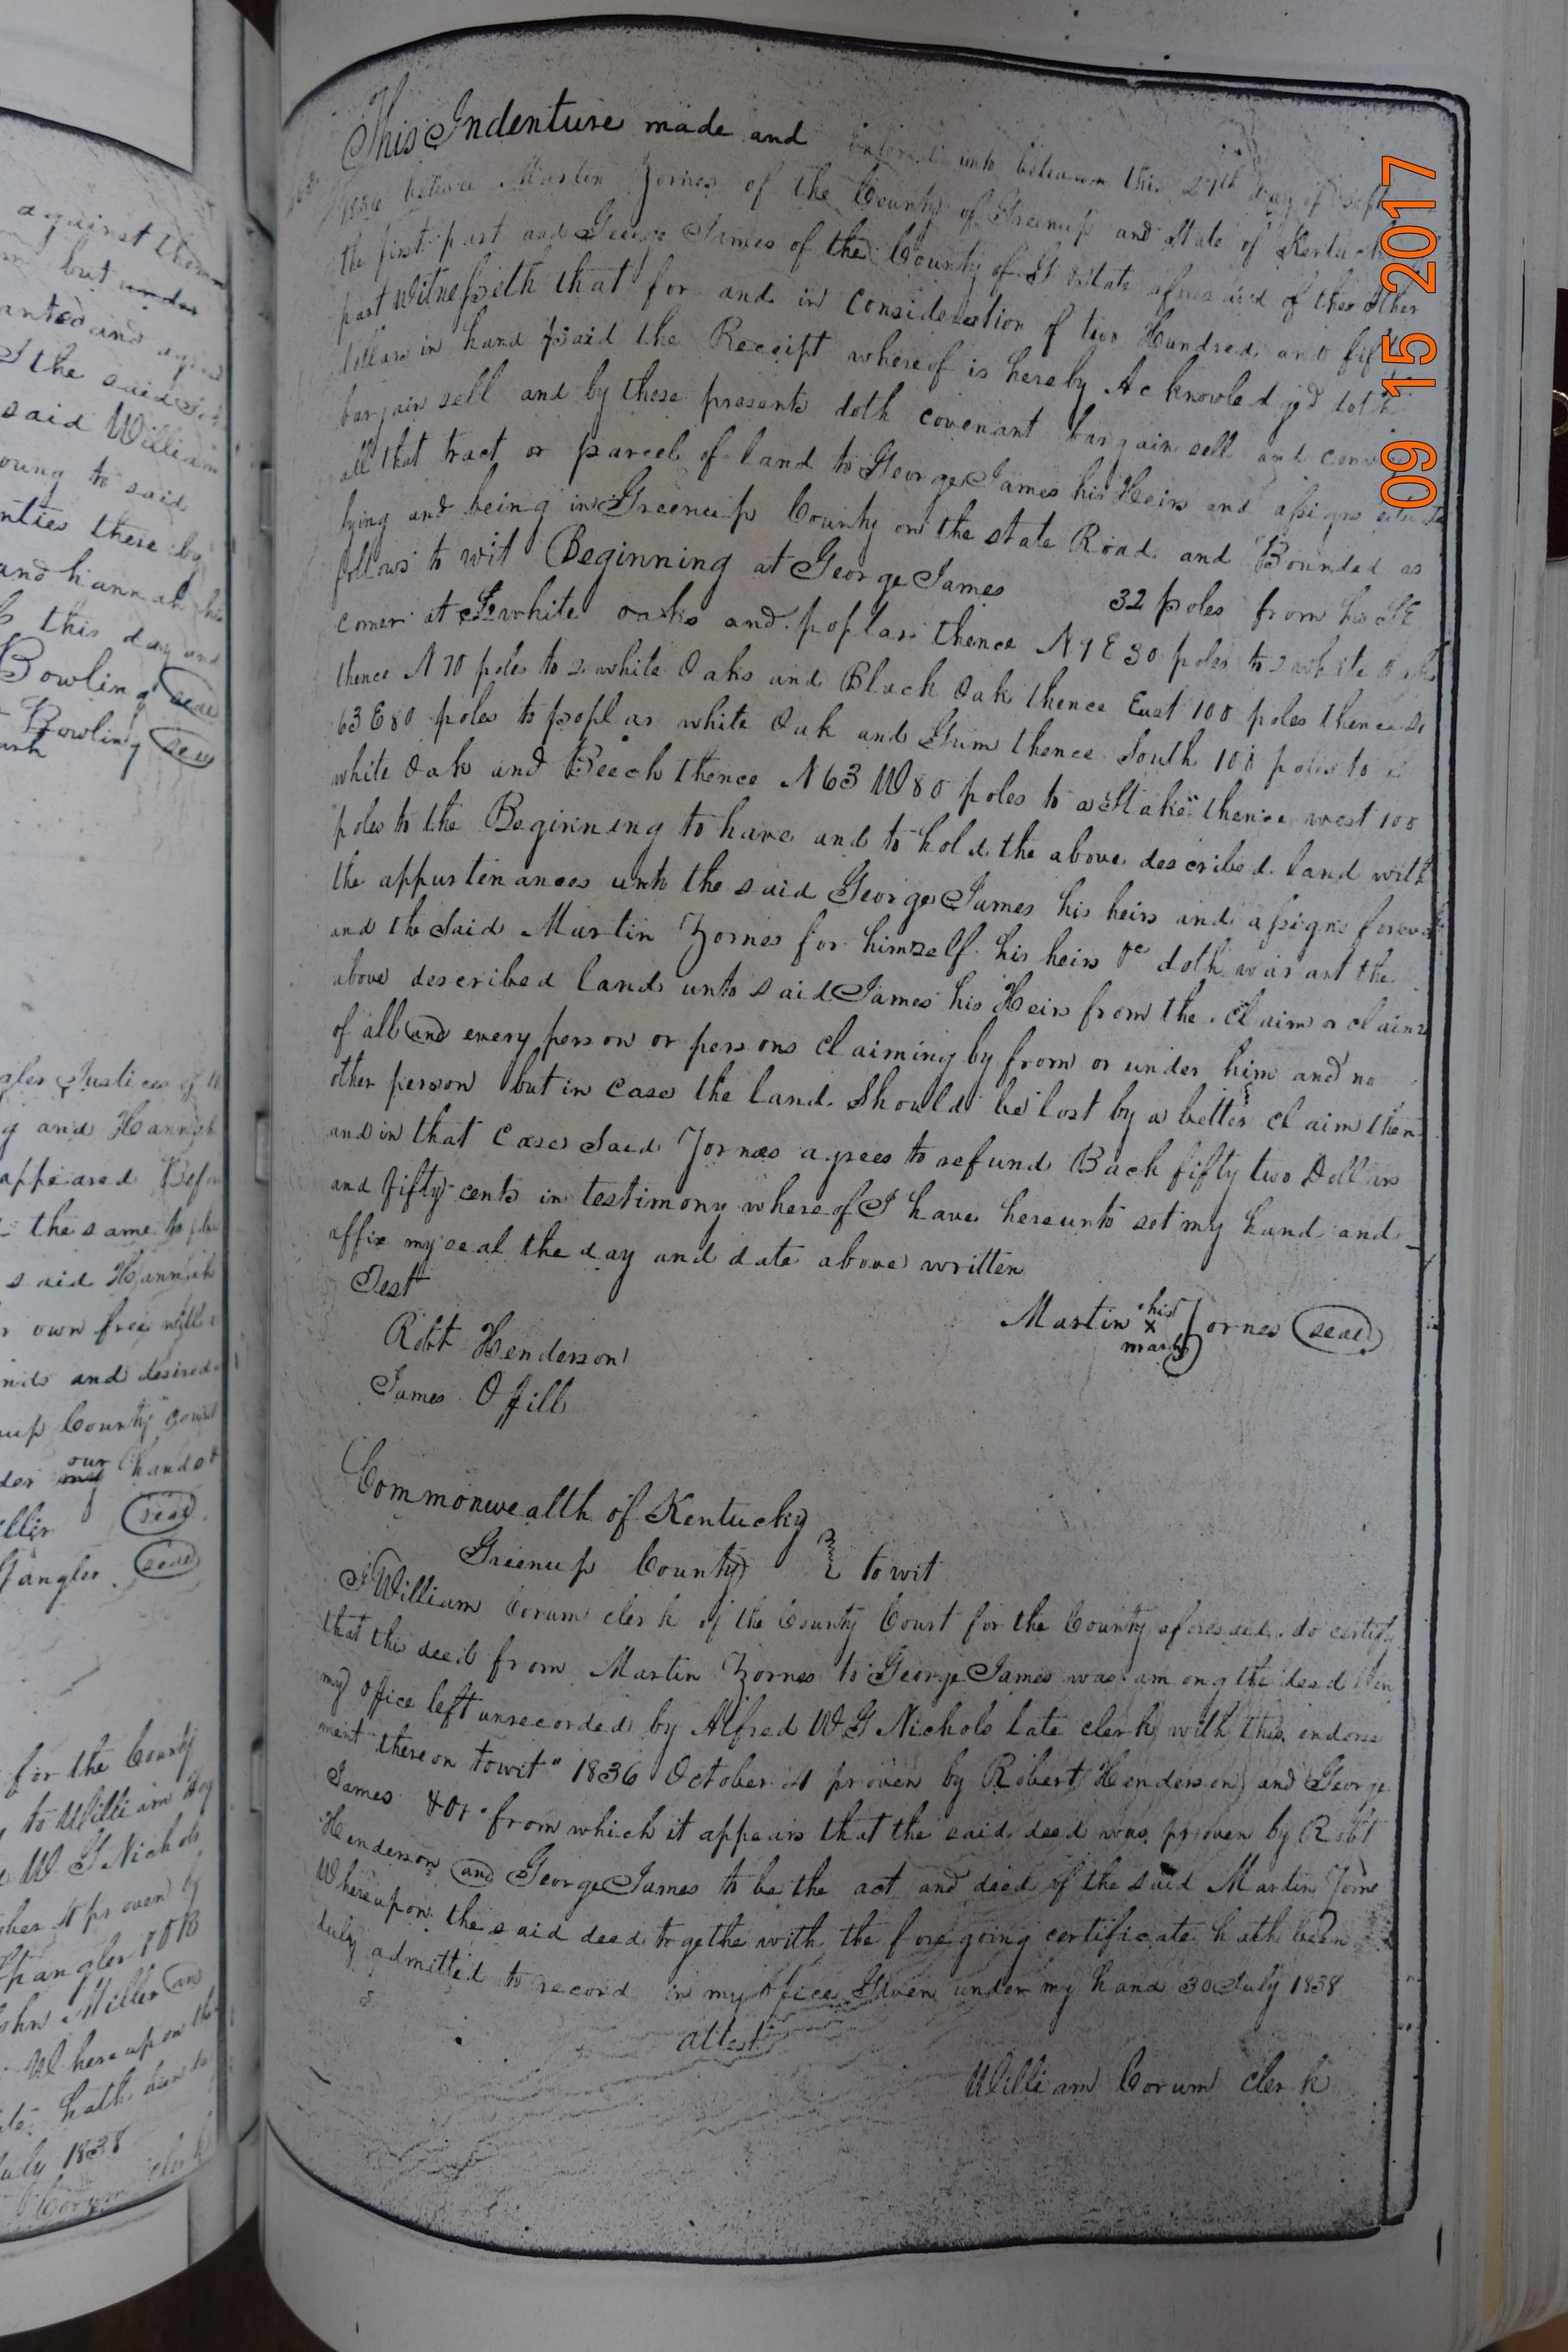 against them
but under
anted and agre
I the said
said William
oung to said
nties there by
and hannah his
this day and
Bowling seal
Bowling seal
Justices of
g and Hannah
appeared Befo
the same to
said Hannah
own free will
and desired
up County Court
our
der my hands &
seal
Spangler seal
for the County
to William
W G Nichols
proven by
Spangler
John Miller and
Whereupon the
hath been
July 1838
Corum clerk
This Indenture made and entered into between this 27th day of Sept
1836 between Martin Zornes of the County of Greenup and State of Kentuck
the first part and George James of the County of G & State aforesaid of the other
part Witnesseth that for and in consideration of two Hundred and fif
dollars in hand paid the Receipt whereof is hereby Acknowledged doth
bargain sell and by these presents doth covenant bargain sell and
all that tract or parcel of land to George James his Heirs and assigns
lying and being in Greenup County on the state Road and Bounded as
follows to wit Beginning at George James 32 poles from his
corner at white oaks and poplar thence N 9 E 30 poles to 2 white Oaks
thence N 70 poles to 2 white Oaks and Black Oak thence East 100 poles thence S
63 E 80 poles to poplar white Oak and Gum thence South 100 poles to
white Oak and Beech thence N 63 W 80 poles to a Stake thence west 100
poles to the Beginning to have and to hold the above described land with
the appurtenances unto the said George James his heirs and assigns forever
and the said Martin Zornes for himself his heirs &c doth warant the
above described land unto said James his Heirs from the claim or claims
of all and every person or persons claiming by from or under him and no
other person but in case the land Should be lost by a better claim then
and in that case said Zornes agrees to refund Back fifty two Dollars
and fifty cents in testimony whereof I have hereunto set my hand and
affix my seal the day and date above written
Test
his
Martin x Zornes seal
mark
Robt Henderson
James Offill
Commonwealth of Kentucky
Greenup County } to wit
I William Corum clerk of the County Court for the County aforesaid do certify
that this deed from Martin Zornes to George James was among the deed in
my office left unrecorded by Alfred W G Nichols late clerk with this endorse
ment thereon towit "1836 October 4 proven by Robert Henderson and George
James from which it appears that the said deed was proven by Robt
Henderson and George James to be the act and deed of the said Martin Zorne
Whereupon the said deed togethe with the foregoing certificate hath been
duly admitted to record in my office Given under my hand 30 July 1838
attest
William Corum clerk
09 15 2017